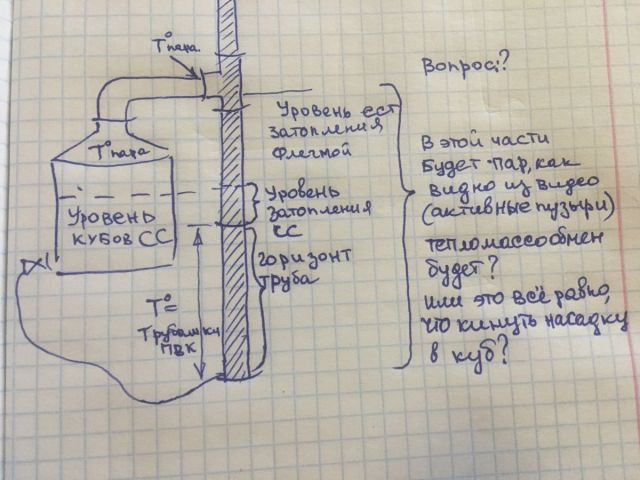 T° пара
Вопрос:?
Уровень ест
затопления
флегмой
T° пара
В этой части
будет пар, как
видно из видео
(активные пузыри)
тепломассообмен
будет?
или это всё равно,
что кинуть насадку
в куб?
Уровень
кубов СС
Уровень
затопления
СС
горизонт
труба
T°=
ПВК